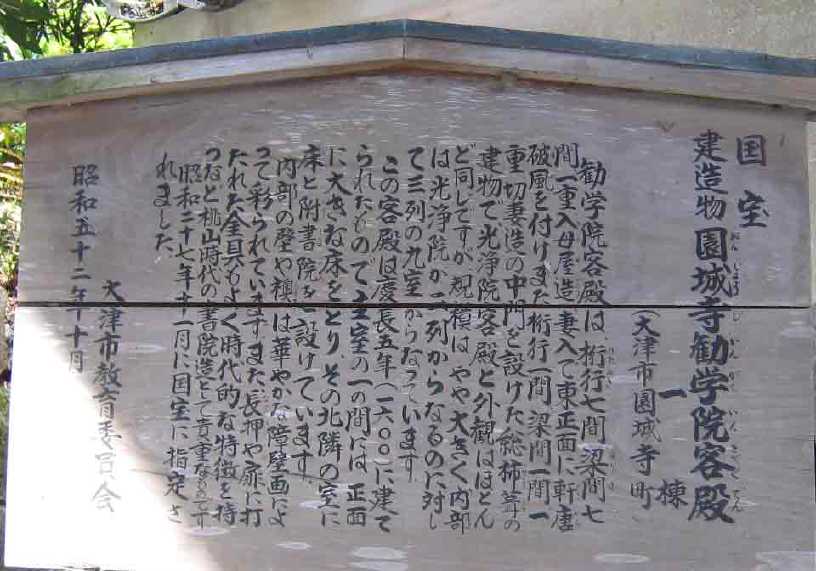 国宝
建造物 園城寺勧学院客殿
おんじょうじかんがくいんきゃくでん
一棟
(大津市園城寺町)
勧学院客殿は、桁行七間、梁間七
間一重入母屋造、妻入で東正面に軒唐
破風を付け、また桁行一間、梁間一間、一
重切妻造の中門を設けた総柿葺の
建物で光浄院客殿と外観はほとん
ど同じですが、規模はやや大きく内部
は光浄院が二列からなるのに対し
て三列の九室からなっています。
この客殿は慶長五年(一六〇〇)に建て
られたもので主室の一の間には、正面
に大きな床をとり、その北隣の室に
床と附書院を設けています。
内部の壁や襖は華やかな障壁画によ
って彩られています。また長押や扉に打
たれた金具もよく時代的な特徴を持
つなど桃山時代の書院造として貴重なものです
昭和二十七年十一月に国宝に指定さ
れました。
大津市教育委員会
昭和五十二年十月